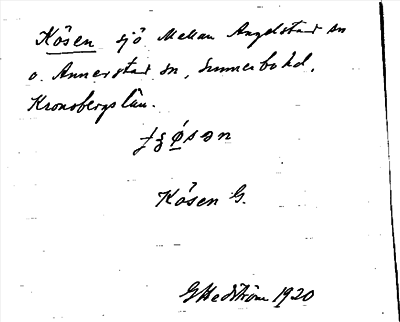 Kösen sjö Mellan Angelstad sn
o. Annerstad sn, Sunnerbo hd.
Kronobergs län.
Kösen G.
GHedström 1920